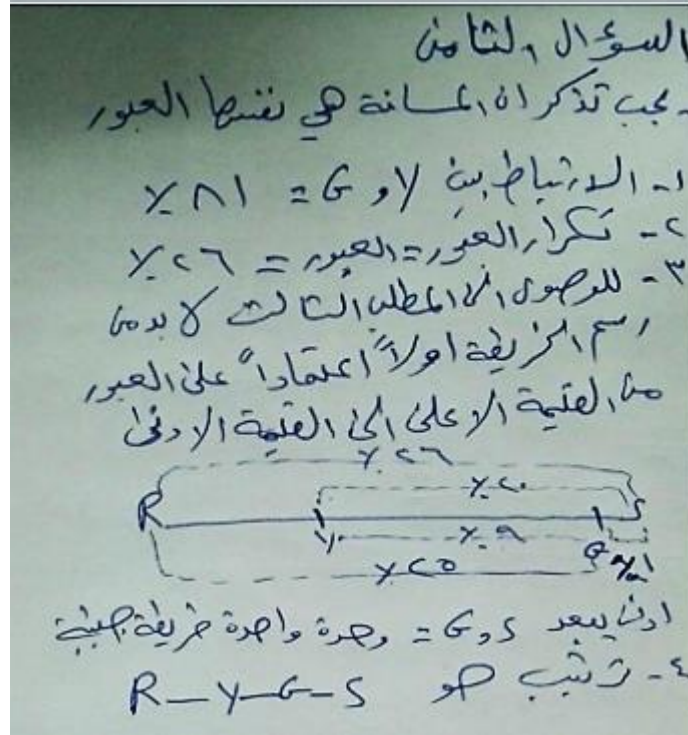 السؤال الثامن
يجب تذكر ان المسافة هي نفسها العبور
١- الارتباط بين y و G = ٨١٪
٢- تكرار العبور = العبور = ٢٦٪
٣- للوصول الى المطلب الثالث لا بد من
رسم الخريطة اولاً اعتماداً على العبور
من القيمة الاعلى الى القيمة الادنى
٢٦٪
٢٠٪
R S
y ١٩٪ G ١٪
٢٥٪
اذن يبعد S و G = وحدة واحدة خريطة جينية
٤- ترتيب هو R-y-G-S